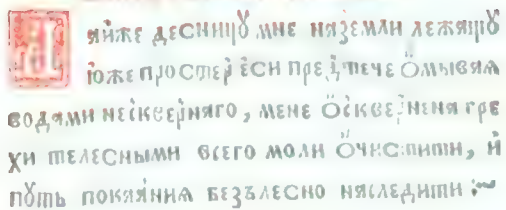 Дайже десницꙋ мне наземли лежащꙋ
юже простер̾ еси пред̾тече омывая
водами нескверняго, мене оскверненя гре
хи телесными всего моли очистити, и
пꙋть покаяния безблесно наследити :~